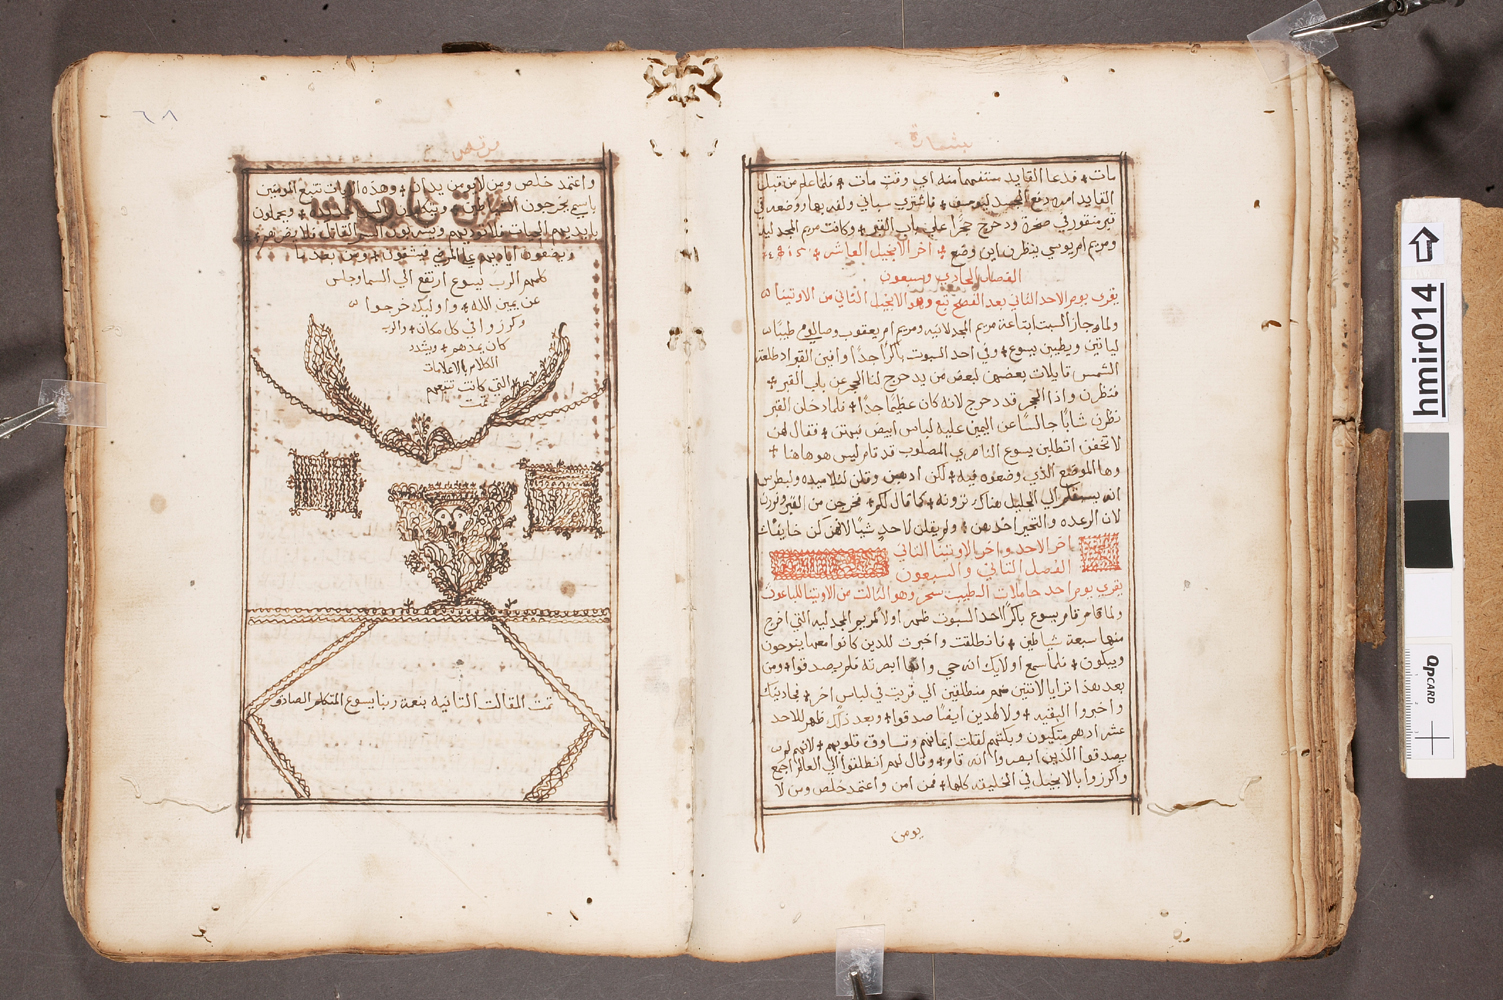 بشارة
مات فدعا القايد ستفهما منه اي وقت مات فلما علم من قبل
القايد امر بدفع الجسد ليوسف فاشترى سباني ولفه بها ووضعه في
قبر منقور في صخرة ودحرج حجرًا علي باب القبر وكانت مريم المجدليه
ومريم ام يوسي ينظرن اين وضع اخر الانجيل العاشر
الفصل الحادي وسبعون
يقري يوم الاحد الثاني بعد الفصح وهو الانجيل الثاني من الاوتينا
ولما جاز السبت ابتاعة مريم المجدلانيه ومريم ام يعقوب وصالوم طيبًا
لياتين ويطيبن يسوع وفي احد السبوت باكرًا جدًا وافين القبر اد طلعة
الشمس قايلات بعضهن لبعض من يدحرج لنا الحجر عن باب القبر
فنظرن واذا الحجر قد دحرج لانه كان عظيمًا جدًا فلما دخلن القبر
نظرن شابًا جالسًا عن اليمين عليه لباس ابيض فبهتن فقال لهن
لا تخفن اتطلبن يسوع الناصري المصلوب قد قام ليس هو هاهنا
وها الموضع الذي وضعوه فيه لكن ادهبن وقلن لتلاميده ولبطرس
انه يسبقكم الي الجليل هناك ترونه كما قال لكم فخرجن من القبر وفررن
لان الرعده والتحير اخدهن ولم يقلن لاحد شيًا لانهن كن خايفات
اخر الاحد واخر الاوتينا الثاني
الفصل الثاني والسبعون
يقري يوم احد حاملات الطيب سحر وهو الثالث من الاوتينا للباعوث
ولما قام قام يسوع باكر احد السبوت ظهر اولًا لمريم المجدليه التي اخرج
منها سبعة شياطين فانطلقت واخبرت للدين كانوا معها ينوحون
ويبكون فلما سمع اوليك انه حي وانها ابصرته فلم يصدقوا ومن
بعد هدا ترايا لاتنين منهم منطلقين الي قريت في لباس اخر فجا دنيك
واخبروا البقيه ولا لهدين ايضًا صدقوا وبعد ذلك ظهر للاحد
عشر ادهم متكيون وبكتهم لقلت ايمانهم وقساوة قلوبهم لانهم لم
يصدقوا الذين ابصروا انه قام وقال لهم انطلقوا الي العالم اجمع
واكرزوا بالانجيل في الخليقه كلها فمن امن واعتمد خلص ومن لا
يومن
مرقس
٦٨
واعتمد خلص ومن لا يومن يدان وهذه الايات تتبع المومنين
باسمي يخرجون الشياطين ويتكلمون ويحملون
بايديهم الحيات فلا توديهم ويشربون السم القاتل فلا يضرهم
ويضعون اياديهم علي المرضي فيشفون ومن بعد ما
كلمهم الرب يسوع ارتقع الي السما وجلس
عن يمين الله واوليك خرجوا
وكرزوا في كل مكان والرب
كان يمدهم ويشدد
الكلام بالاعلامات
التي كانت تتبعهم
تمت
تمت المقالت التانيه بنعمة ربنا يسوع المتكلم الصادق
hmir014
QP CARD